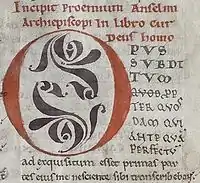 Incipit Proemium Anselmi
Archiepiscopi in Libro cur
Deus homo
OPUS
SUBDI
TUM
QUOD PP
TER QUOS
DAM QUI
ANTE QUA
PERFECTU
ad exquisitum esset primas par
tes eius me nesciente sibi transcribebant